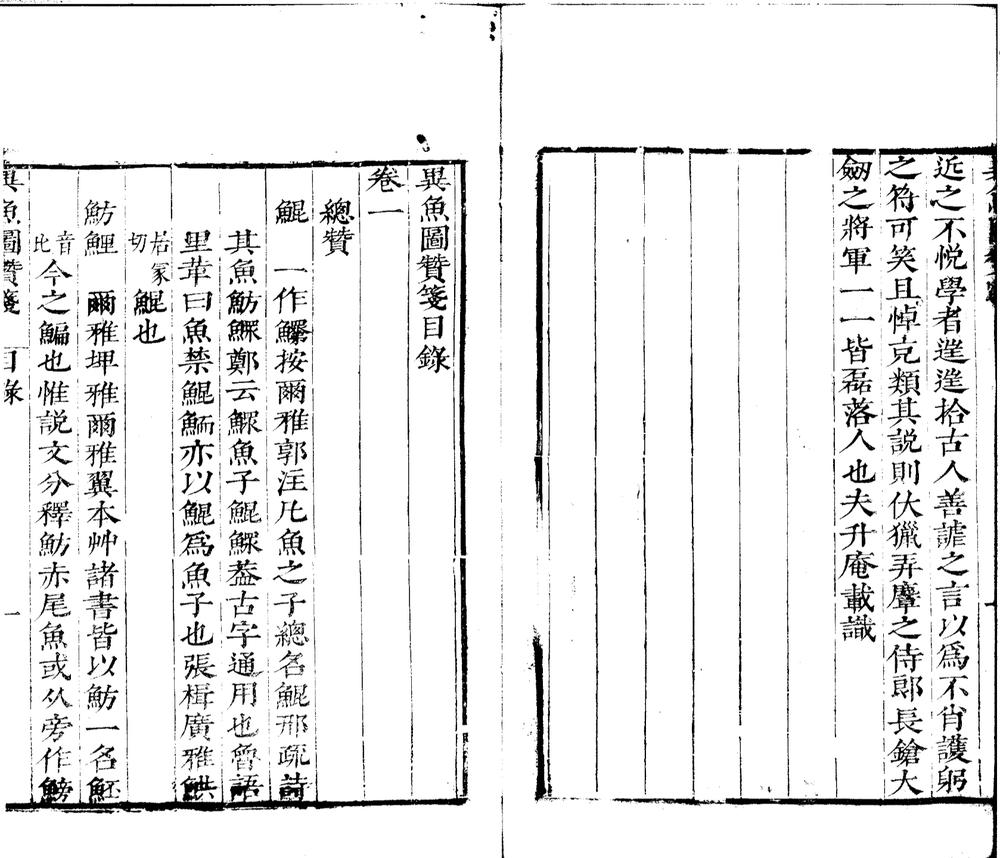 近之不悦學者遑遑拾古人善謔之言以爲不肖護躬
之符可笑且悼克類其説則伏獵弄麞之侍郎長鎗大
劒之將軍一一皆磊落人也夫升庵載識
異魚圖贊箋目錄
卷一
總贊
鯤　一作鱞按爾雅郭注凡魚之子總名鯤邢疏詩
其魚魴鰥鄭云鰥魚子鯤鰥葢古字通用也魯語
里革曰魚禁鯤鮞亦以鯤爲魚子也張楫廣雅䱋
居家切鯤也
魴鯉　爾雅埤雅爾雅翼本艸諸書皆以魴一名魾
音比今之鯿也惟説文分釋魴赤尾魚或从旁作鰟
異魚圖贊箋　目錄　一